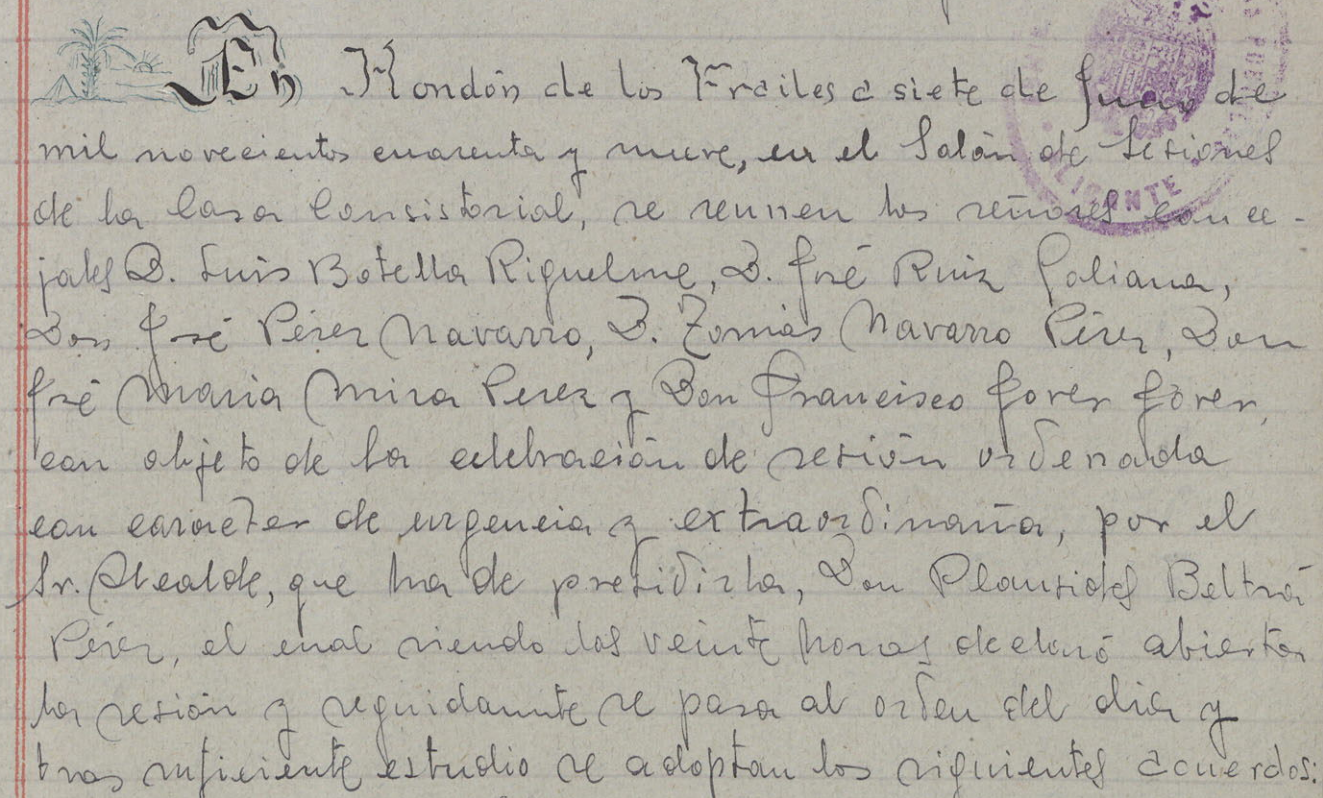 En Hondón de los Frailes a siete de Junio de
mil novecientos cuarenta y nueve, en el Salón de Sesiones
de la Casa Consistorial, se reunen los señores conce-
jales D. Luis Botella Riquelme, D. José Ruiz Galiana,
Don José Pérez Navarro, D. Tomás Navarro Pérez, Don
José Maria Mira Perez y Don Francisco Jover Jover,
con objeto de la celebración de sesión ordenada
con caracter de urgencia y extraordinaria, por el
Sr. Alcalde, que ha de presidirla, Don Plausides Beltrá
Pérez, el cual siendo las veinte horas declaró abierta
la sesión y seguidamte se pasa al orden del dia y
tras suficiente estudio se adoptan los siguientes acuerdos:
ALICANTE